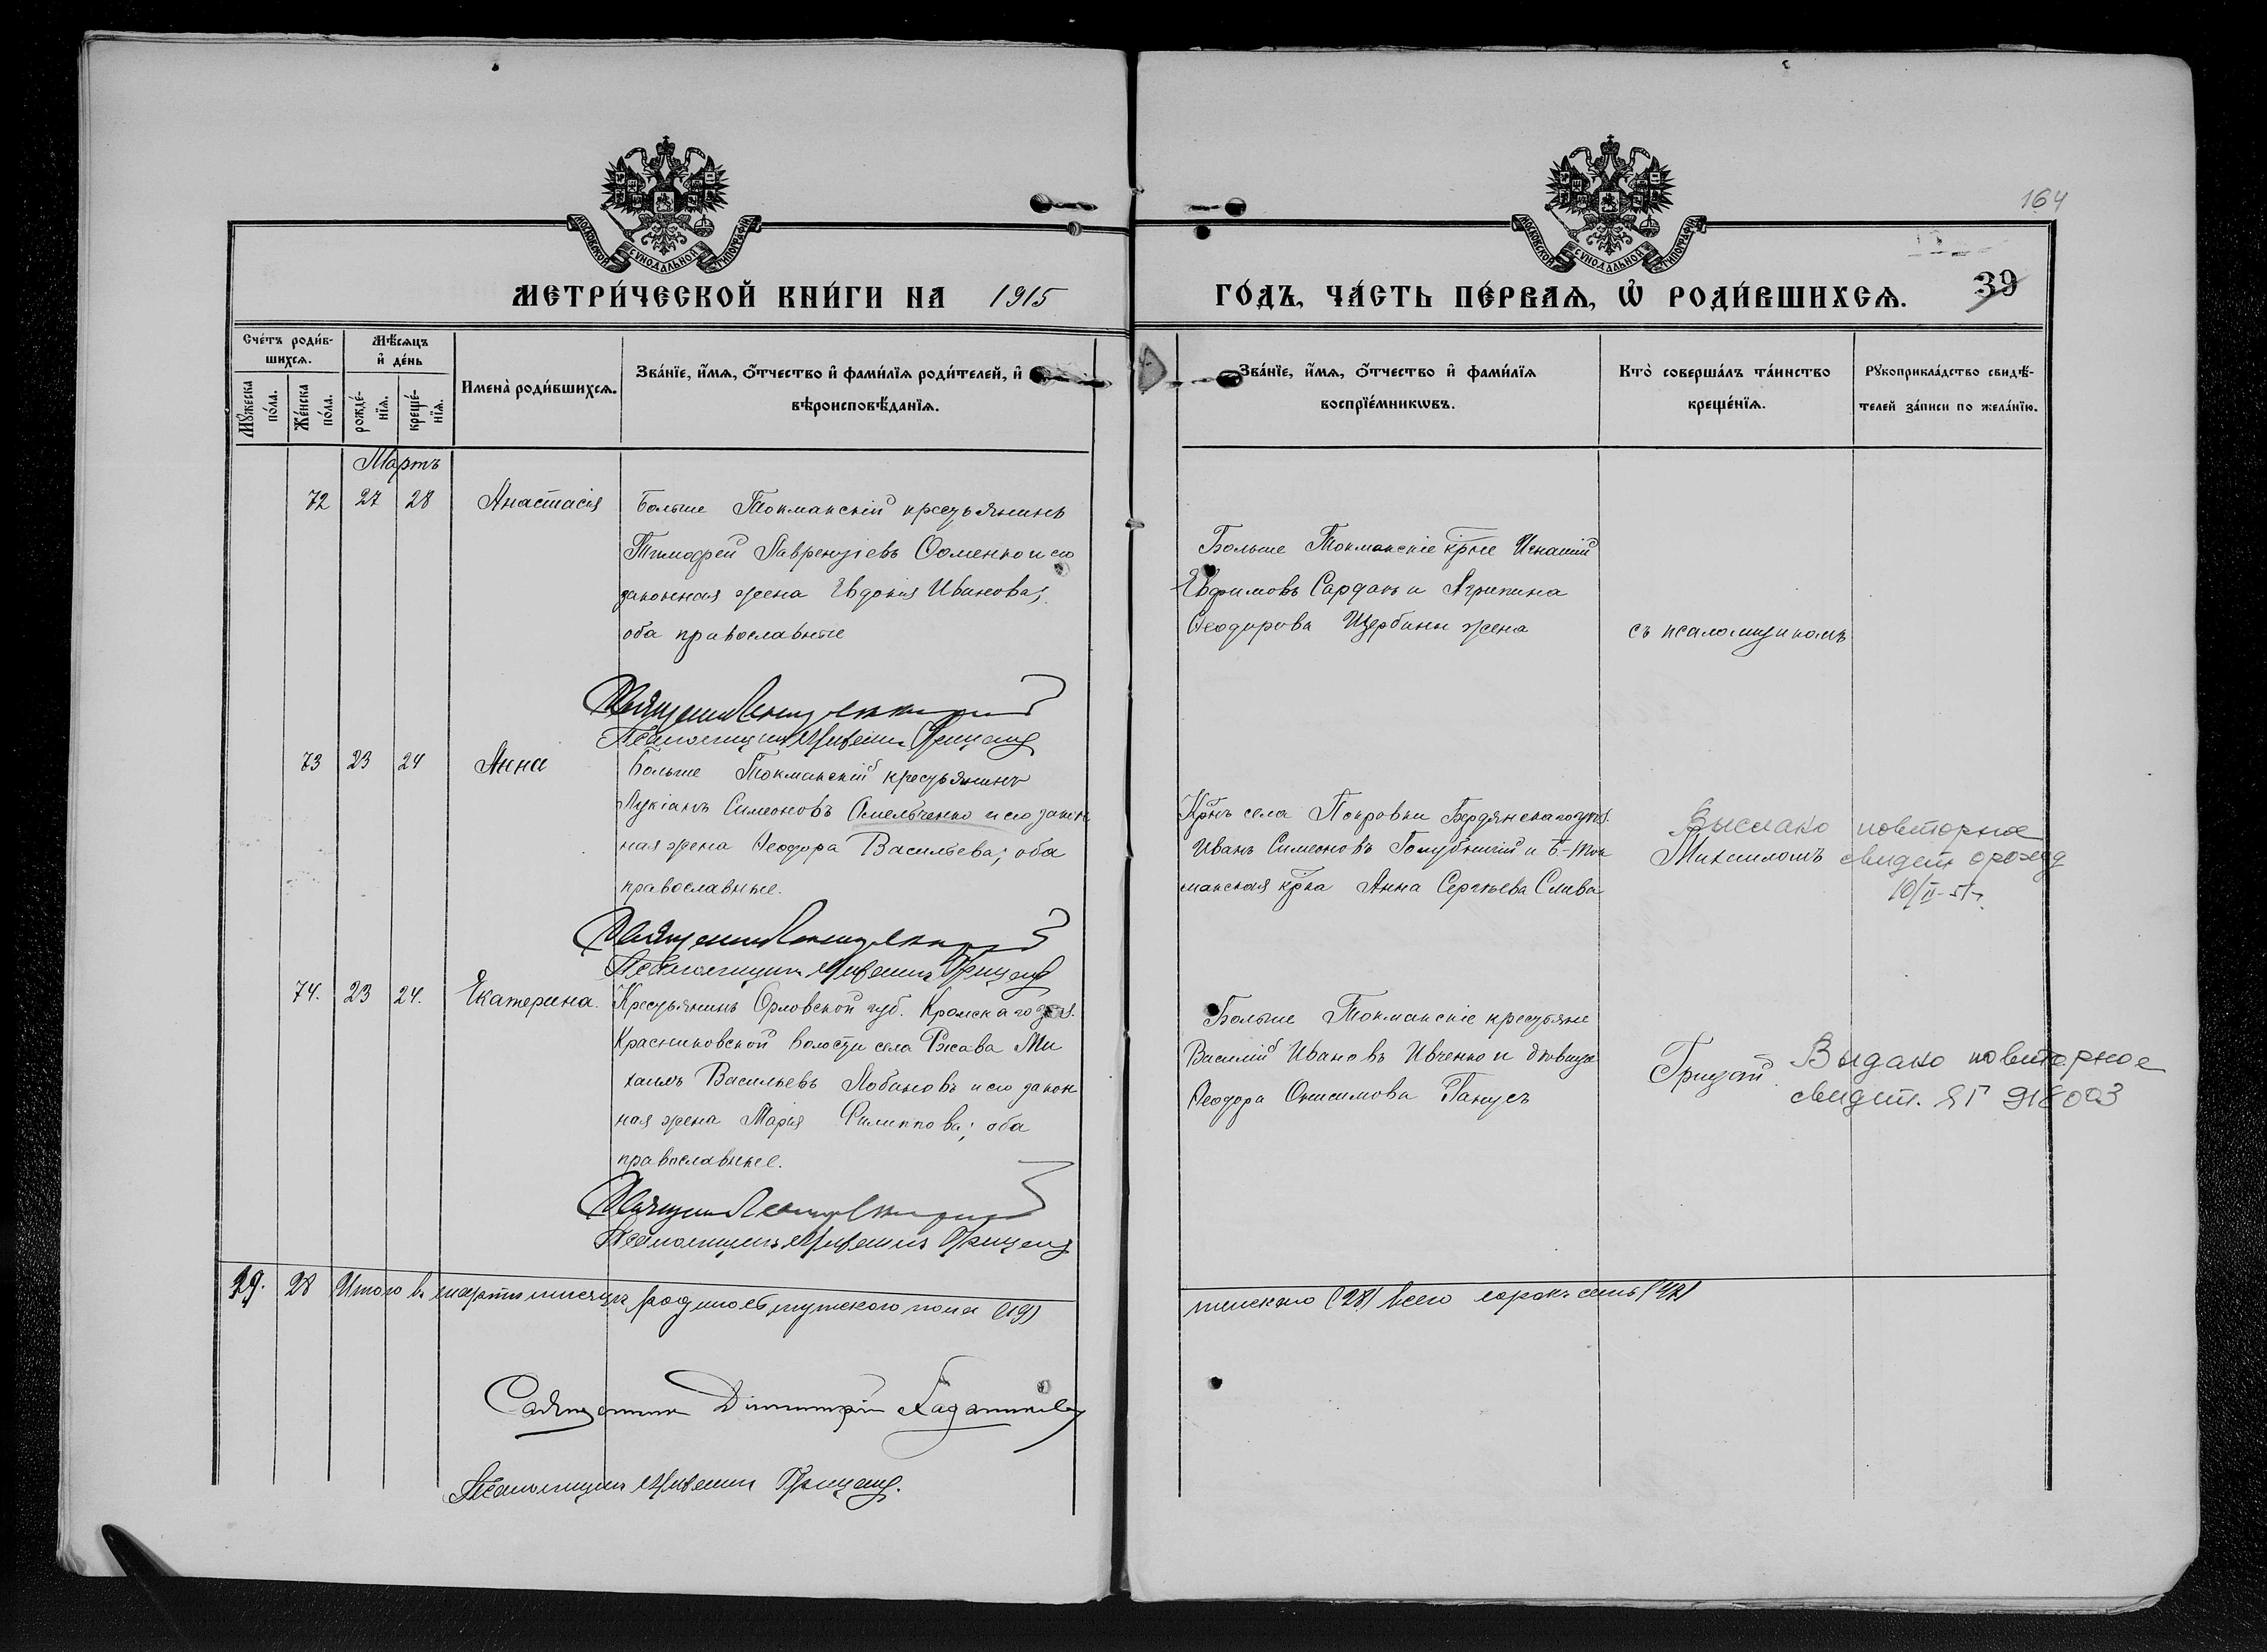 164
39
МОСКОВСКОЙ СѴНОДАЛЬНОЙ ТИПОГРАФІИ
МОСКОВСКОЙ СѴНОДАЛЬНОЙ ТИПОГРАФІИ
МЕТРИ́ЧЕСКОЙ КНИ́ГИ НА 1915
ГО́ДЪ, ЧА́СТЬ ПЕ́РВАѦ, Ѽ РОДИ́ВШИХСѦ.
Сче́тъ роди́в-
шихсѧ.
Мꙋ́жеска по́ла.
Же́нска по́ла.
Мѣ́сѧцъ
и҆ де́нь
рожде́-
нїѧ.
креще́-
нїѧ.
И҆мена̀ роди́вшихсѧ.
Зва́нїе, и҆́мѧ, ѻ҆́тчество и҆ фами́лїѧ роди́телей, и҆
вѣроисповѣ́данїѧ.
Зва́нїе, и҆́мѧ, ѻ҆́тчество и҆ фами́лїѧ
воспрїе́мникѡвъ.
Кто̀ соверша́лъ та́инство
креще́нїѧ.
Рꙋкоприкла́дство свидѣ́-
телей за́писи по жела́нїю.
Мартъ
72 27 28 Анастасія
Больше Токмакскій крестьянинъ
Тимофей Лаврентіевъ Ѳоменко и его
законная жена Евдокія Иванова;
оба православные
Больше Токмакскіе кр̃не Игнатій
Евфимовъ Сардакъ и Агрипина
Ѳеодорова Щербины жена
съ псаломщикомъ
Псаломщикъ Грицай
73 23 24 Анна
Больше Токмакскій крестьянинъ
Лукіанъ Симеоновъ Омельченко и его закон
ная жена Ѳеодора Васильева; оба
православные.
Кр̃нъ села Покровки Бердянскаго уѣз.
Иванъ Симеоновъ Голубничій и Б-Ток
макская кр̃ка Анна Сергѣева Слива
Михаиломъ
Выслано повторное
свидет о рожд
10/II-51г.
Псаломщикъ Грицай
74. 23 24. Екатерина.
Крестьянинъ Орловской губ. Кромскаго уѣз.
Красниковской волости села Ржава Ми
хаилъ Васильевъ Лобановъ и его закон
ная жена Марія Филиппова; оба
православные.
Больше Токмакскіе крестьяне
Василій Ивановъ Ивченко и дѣвица
Ѳеодора Онисимова Ганусъ
Грицай
Выдано повторное
свидет. ЯГ 918003
Псаломщикъ Грицай
19. 28 Итого въ мартѣ мѣсяцѣ родилось мужескаго пола (19)
женскаго (28) всего сорокъ семь (47)
Священникъ Димитрій
Псаломщикъ Грицай.